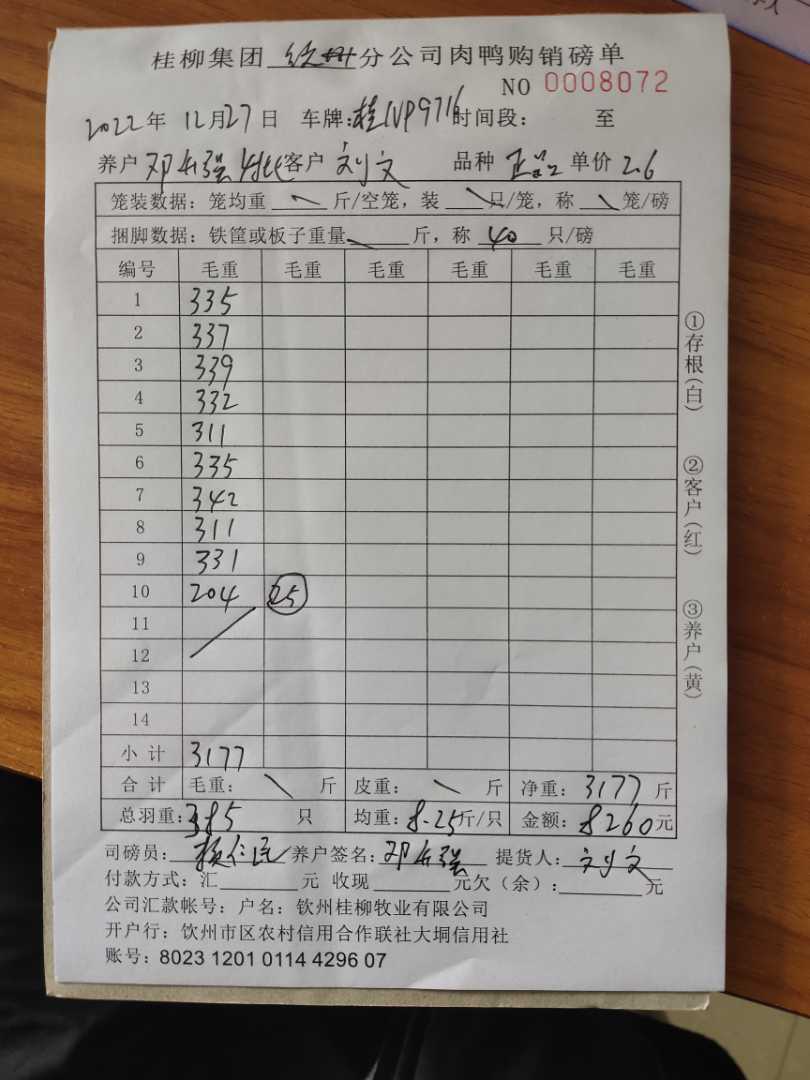 桂柳集团 钦州 分公司肉鸭购销磅单
NO 0008072
2022年 12月27日 车牌:桂NP9716 时间段: 至
养户 邓 强 客户 刘文 品种 正品 单价 2.6
笼装数据: 笼均重 斤/空笼, 装 只/笼, 称 笼/磅
捆脚数据: 铁筐或板子重量 斤, 称 40 只/磅
编号 毛重 毛重 毛重 毛重 毛重 毛重
1 335
2 337
3 339
4 332
5 311
6 335
7 342
8 311
9 331
10 204 25
11
12
13
14
小计 3177
合计 毛重: 斤 皮重: 斤 净重: 3177 斤
总羽重: 385 只 均重: 8.25斤/只 金额: 8260元
司磅员: 杨仁 养户签名: 邓 强 提货人: 刘文
付款方式: 汇 元 收现 元欠(余): 元
公司汇款帐号: 户名: 钦州桂柳牧业有限公司
开户行: 钦州市区农村信用合作联社大垌信用社
账号: 8023 1201 0114 4296 07
①存根(白)
②客户(红)
③养户(黄)